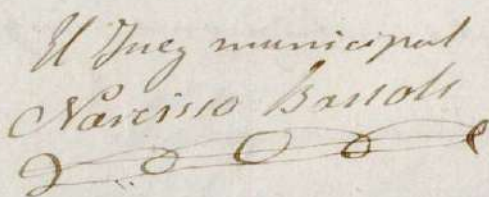 El Juez municipal
Narcisso Bassols